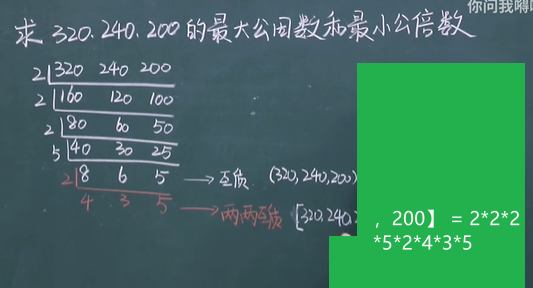 你问我嘚
求 320.240.200 的最大公因数和最小公倍数
2 320 240 200
2 160 120 100
2 80 60 50
5 40 30 25
2 8 6 5 → 互质 (320,240,200)
4 3 5 → 两两互质 [320,240,
，200】 = 2*2*2
*5*2*4*3*5